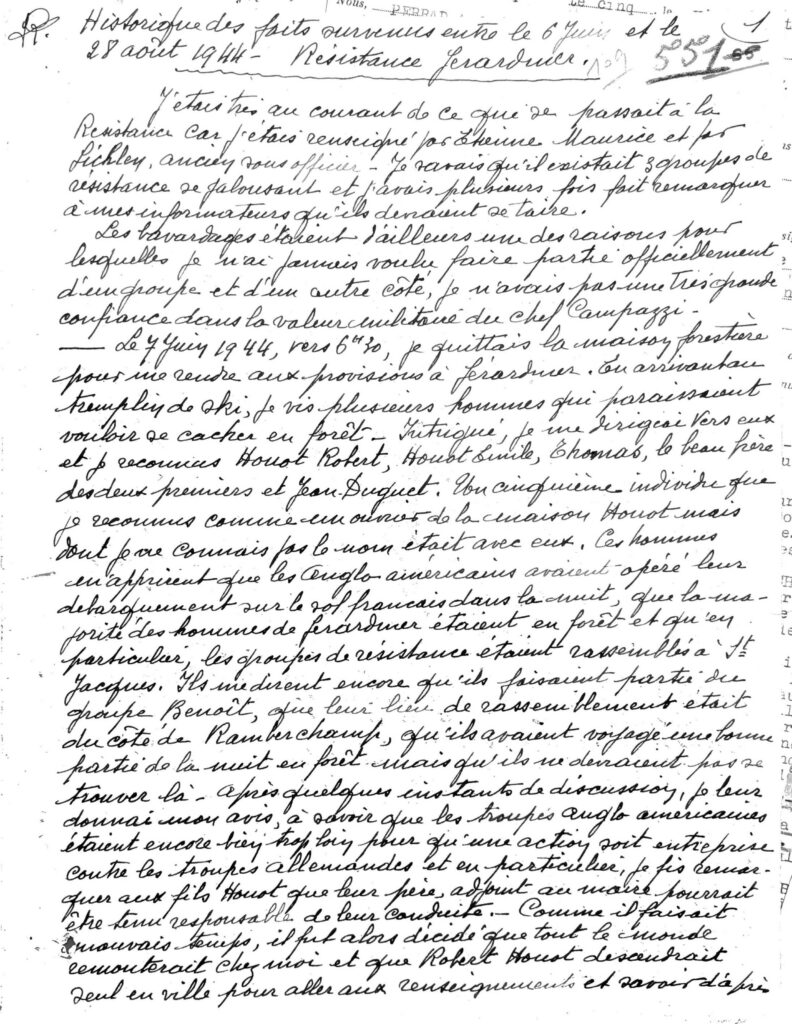 Nous, PERRAD
Le cinq
R. Historique des faits survenus entre le 6 Juin et le 1
28 août 1944 - Résistance Gérardmer. 551
J'étais très au courant de ce que se passait à la
Resistance car j'étais renseigné par Etienne Maurice et par
Lichley, ancien sous officier - Je savais qu'il existait 3 groupes de
résistance se jalousant et j'avais plusieurs fois fait remarquer
à mes informateurs qu'ils devraient se taire.
Les bavardages étaient d'ailleurs une des raisons pour
lesquelles je n'ai jamais voulu faire partie officiellement
d'un groupe et d'un autre côté, je n'avais pas une très grande
confiance dans la valeur militaire du chef Campazzi -
— Le 7 Juin 1944, vers 6h30, je quittais la maison forestière
pour me rendre aux provisions à Gérardmer. En arrivant au
tremplin de ski, je vis plusieurs hommes qui paraissaient
vouloir se cacher en forêt - Intrigué, je me dirigeai vers eux
et je reconnus Houot Robert, Houot Emile, Thomas, le beau frère
des deux premiers et Jean Duguet. Un cinquième individu que
je reconnus comme un ouvrier de la maison Houot mais
dont je ne connais pas le nom était avec eux. Ces hommes
m'apprirent que les Anglo-américains avaient opéré leur
débarquement sur le sol francais dans la nuit, que la ma-
jorité des hommes de Gérardmer étaient en forêt et qu'en
particulier, les groupes de résistance étaient rassemblés à St
Jacques. Ils me dirent encore qu'ils faisaient partie du
groupe Benoît, que leur lieu de rassemblement était
du côté de Ramberchamp, qu'ils avaient voyagé une bonne
partie de la nuit en forêt mais qu'ils ne devraient pas se
trouver là - Après quelques instants de discussion, je leur
donnai mon avis, à savoir que les troupes anglo américaines
étaient encore bien trop loin pour qu'une action soit entreprise
contre les troupes allemandes et en particulier, je fis remar-
quer aux fils Houot que leur père, adjoint au maire pourrait
être tenu responsable de leur conduite. - Comme il faisait
mauvais temps, il fut alors décidé que tout le monde
remonterait chez moi et que Robert Houot descendrait
seul en ville pour aller aux renseignements et savoir d'après